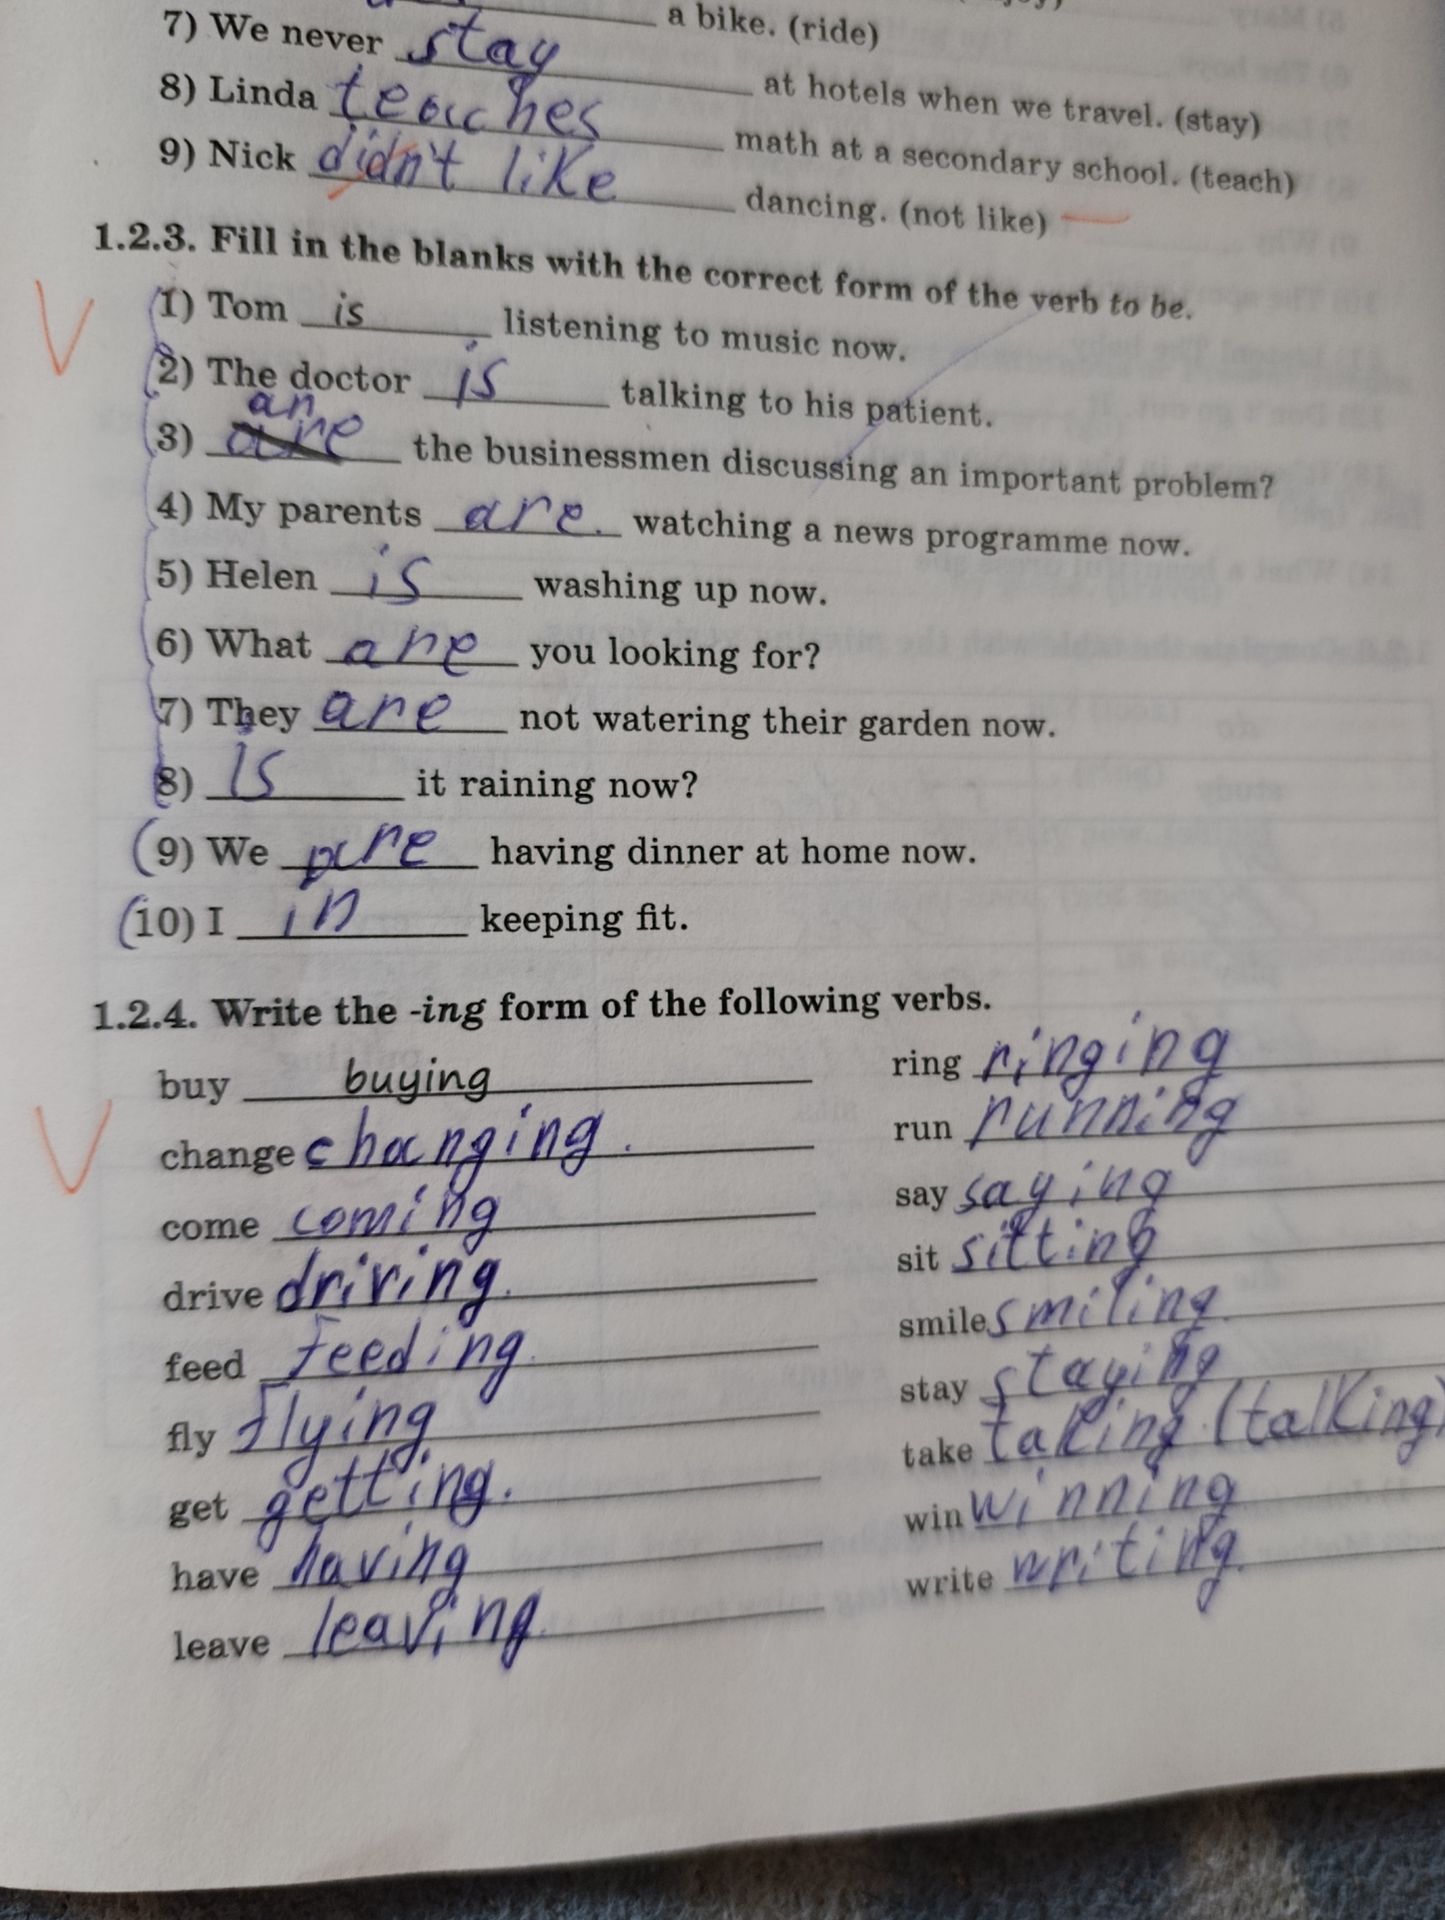 a bike. (ride)
7) We never stay at hotels when we travel. (stay)
8) Linda teaches math at a secondary school. (teach)
9) Nick didn't like dancing. (not like)
1.2.3. Fill in the blanks with the correct form of the verb to be.
1) Tom is listening to music now.
2) The doctor is talking to his patient.
an
3) are the businessmen discussing an important problem?
4) My parents are. watching a news programme now.
5) Helen is washing up now.
6) What are you looking for?
7) They are not watering their garden now.
8) Is it raining now?
9) We are having dinner at home now.
10) I in keeping fit.
1.2.4. Write the -ing form of the following verbs.
buy buying
change changing.
come coming
drive driving.
feed feeding.
fly flying
get getting.
have having
leave leaving.
ring ringing
run running
say saying
sit sitting
smile smiling.
stay staying
take taking (talking)
win winning
write writing.